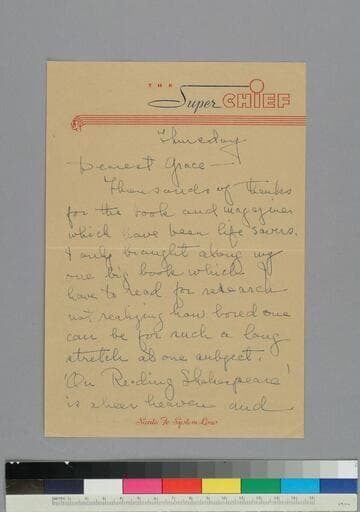 THE
Super CHIEF
Thursday
Dearest Grace —
Thousands of thanks
for the book and magazines
which have been life savers.
I only brought along my
one big book which I
have to read for research
not realizing how bored one
can be for such a long
stretch at one subject.
'On Reading Shakespeare'
is sheer heaven and
Santa Fe System Lines